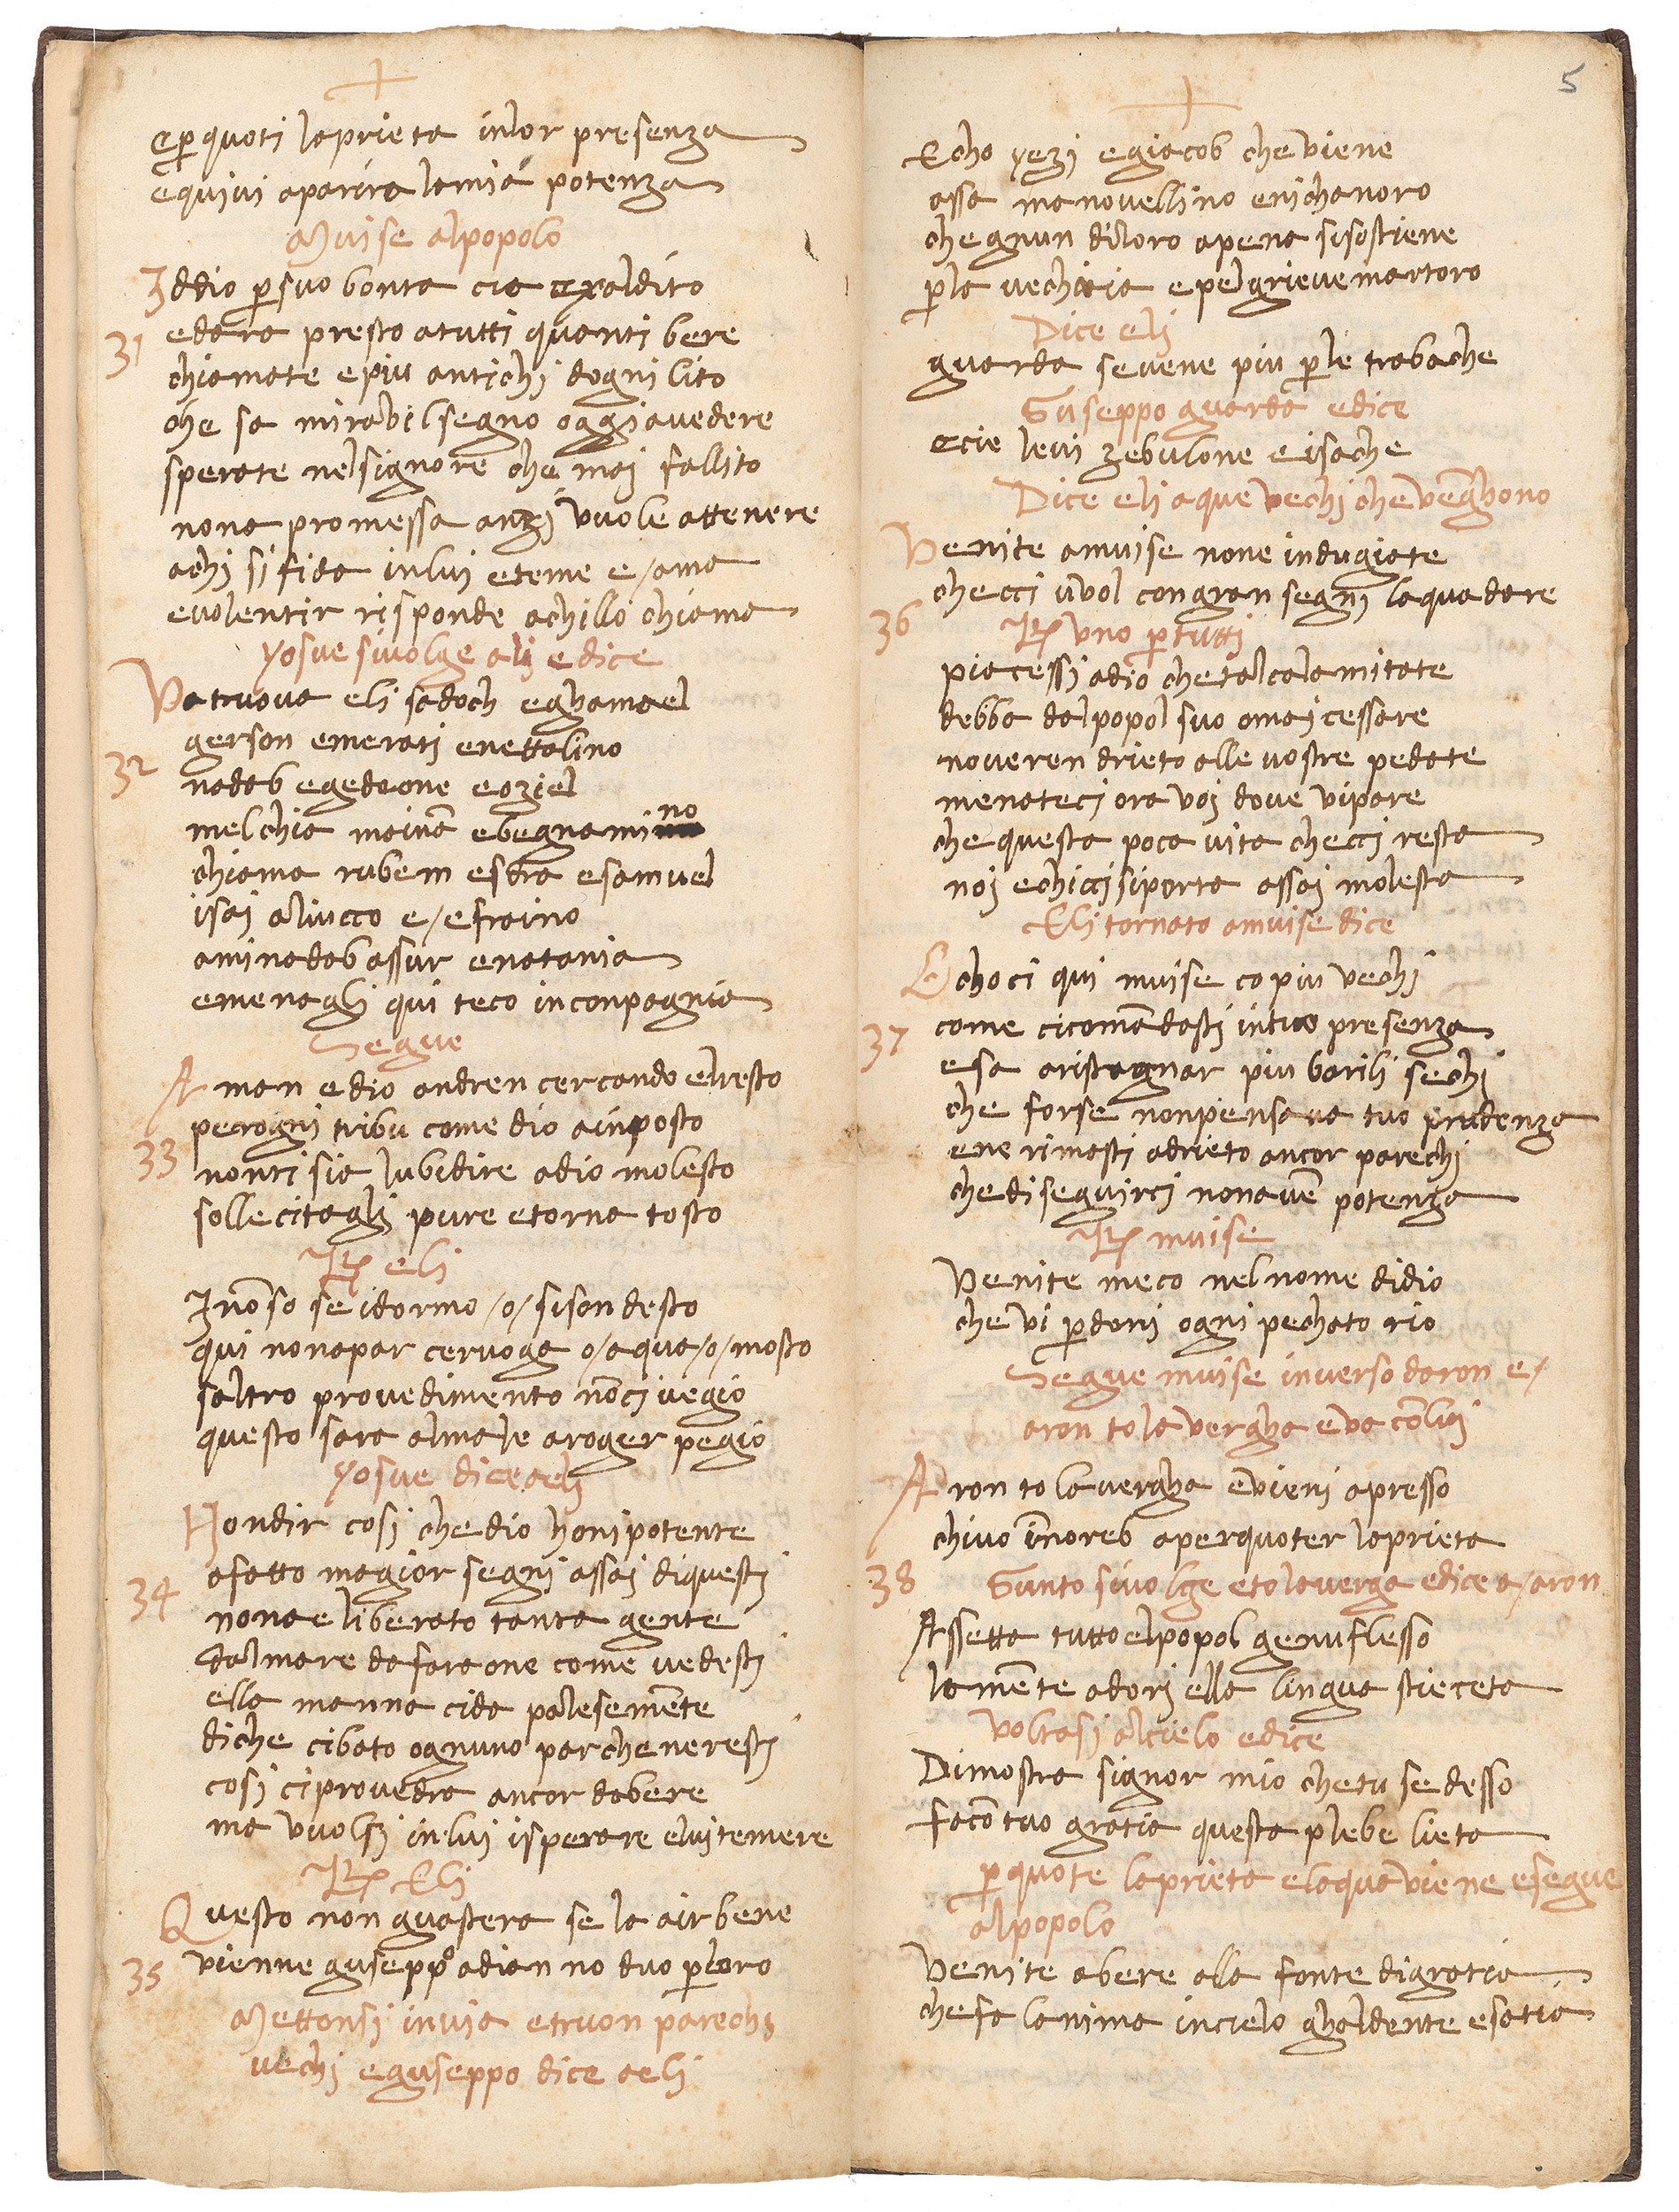 +
e ꝑquoti la prieta inlor presenza
e quivi aparira lamia potenza
Muise alpopolo
Iddio ꝑsuo bonta cia exaldito
31
edara presto atutti quanti bere
chiamate epiu antichi dogni lito
che sa mirabil segno oggi avedere
sperate nelsignore che mai fallito
nona promessa anzi vuole attenere
achi si fida inlui eteme e/ama
evolentir risponde achillo chiama
Yosue sivolge a eli edice
Va truova eli sadoch eghamael
gerson emerati enettalino
32
nadab egedeone eoziel
melchia mainā ebegnamino
chiama rubem esdra esamuel
isai aliucco e/efraino
aminadab assur enatania
emenagli qui teco inconpagnia
Segue
A man edio andren cercando elresto
perogni tribu come dio ainposto
33
nonti sia lubidire adio molesto
sollecitagli pure etorna tosto
R eli
I nō so se idormo /o/ sison desto
qui nonapar cervoga o/aqua/o/mosto
saltro provedimento nōci vegio
questo sara almale aroger pegio
Yosue dice aeli
Hondir cosi che dio honipotente
afatto magior segni assai diquesti
34
nona e liberato tanta gente
dalmare da faraone come vedesti
ella manna cida palesemēte
diche cibato ognuno parche neresti
cosi ciprovedra ancor dabere
ma vuolsi inlui isperare elui temere
R Eli
Questo non guastera se la air bene
35
vienne guseppo adian no duo ꝑloro
Mettonsi invia etruon parechi
vechi eguseppo dice aeli
5
+
Echo yezi egiacob che viene
assa manovellino enichanoro
che gnun diloro apena sisostiene
ꝑla vechiaia epelgrieve martoro
Dice eli
guarda sevene piu ꝑle trabache
Guseppo guarda edice
ecie levi zebulone eisache
Dice eli aque vechi che venghono
Venite amuise none indugiate
checci vuol congran segni laqua dare
36
R uno ꝑtutti
piacessi adio chetal calamitate
debba dalpopol suo omai cessare
noveren drieto alle vostre pedate
menateci ora voi dove vipare
che questa poca vita checci resta
noi echiccisiporta assai molesta
Eli tornato amuise dice
Echoci qui muise co piu vechi
come cicomādasti intuo presenza
37
esa aristagnar piu barili sechi
che forse nonpensava tuo prudenza
ene rimasti adrieto ancor parechi
chedi seguirci nonavē potenza
R muise
Venite meco nelnome didio
che vi ꝑdoni ogni pechato rio
Segue muise inverso daron e/
aron to la vergha eva cōlui
Aron to la vergha evieni apresso
chivo īnoreb aperquoter laprieta
38
Giunto sivolge etolaverga edice a/aron
Assetta tutto elpopol genuflesso
lamēte adori ella lingua stieceta
voltasi alcielo edice
Dimostra signor mio chetu sedesso
facōtuo gratia questa plebe lieta
ꝑquote laprieta elaqua viene esegue
alpopolo
Venite abere alla fonte digratia
chefa lanima incielo ghaldente esatia